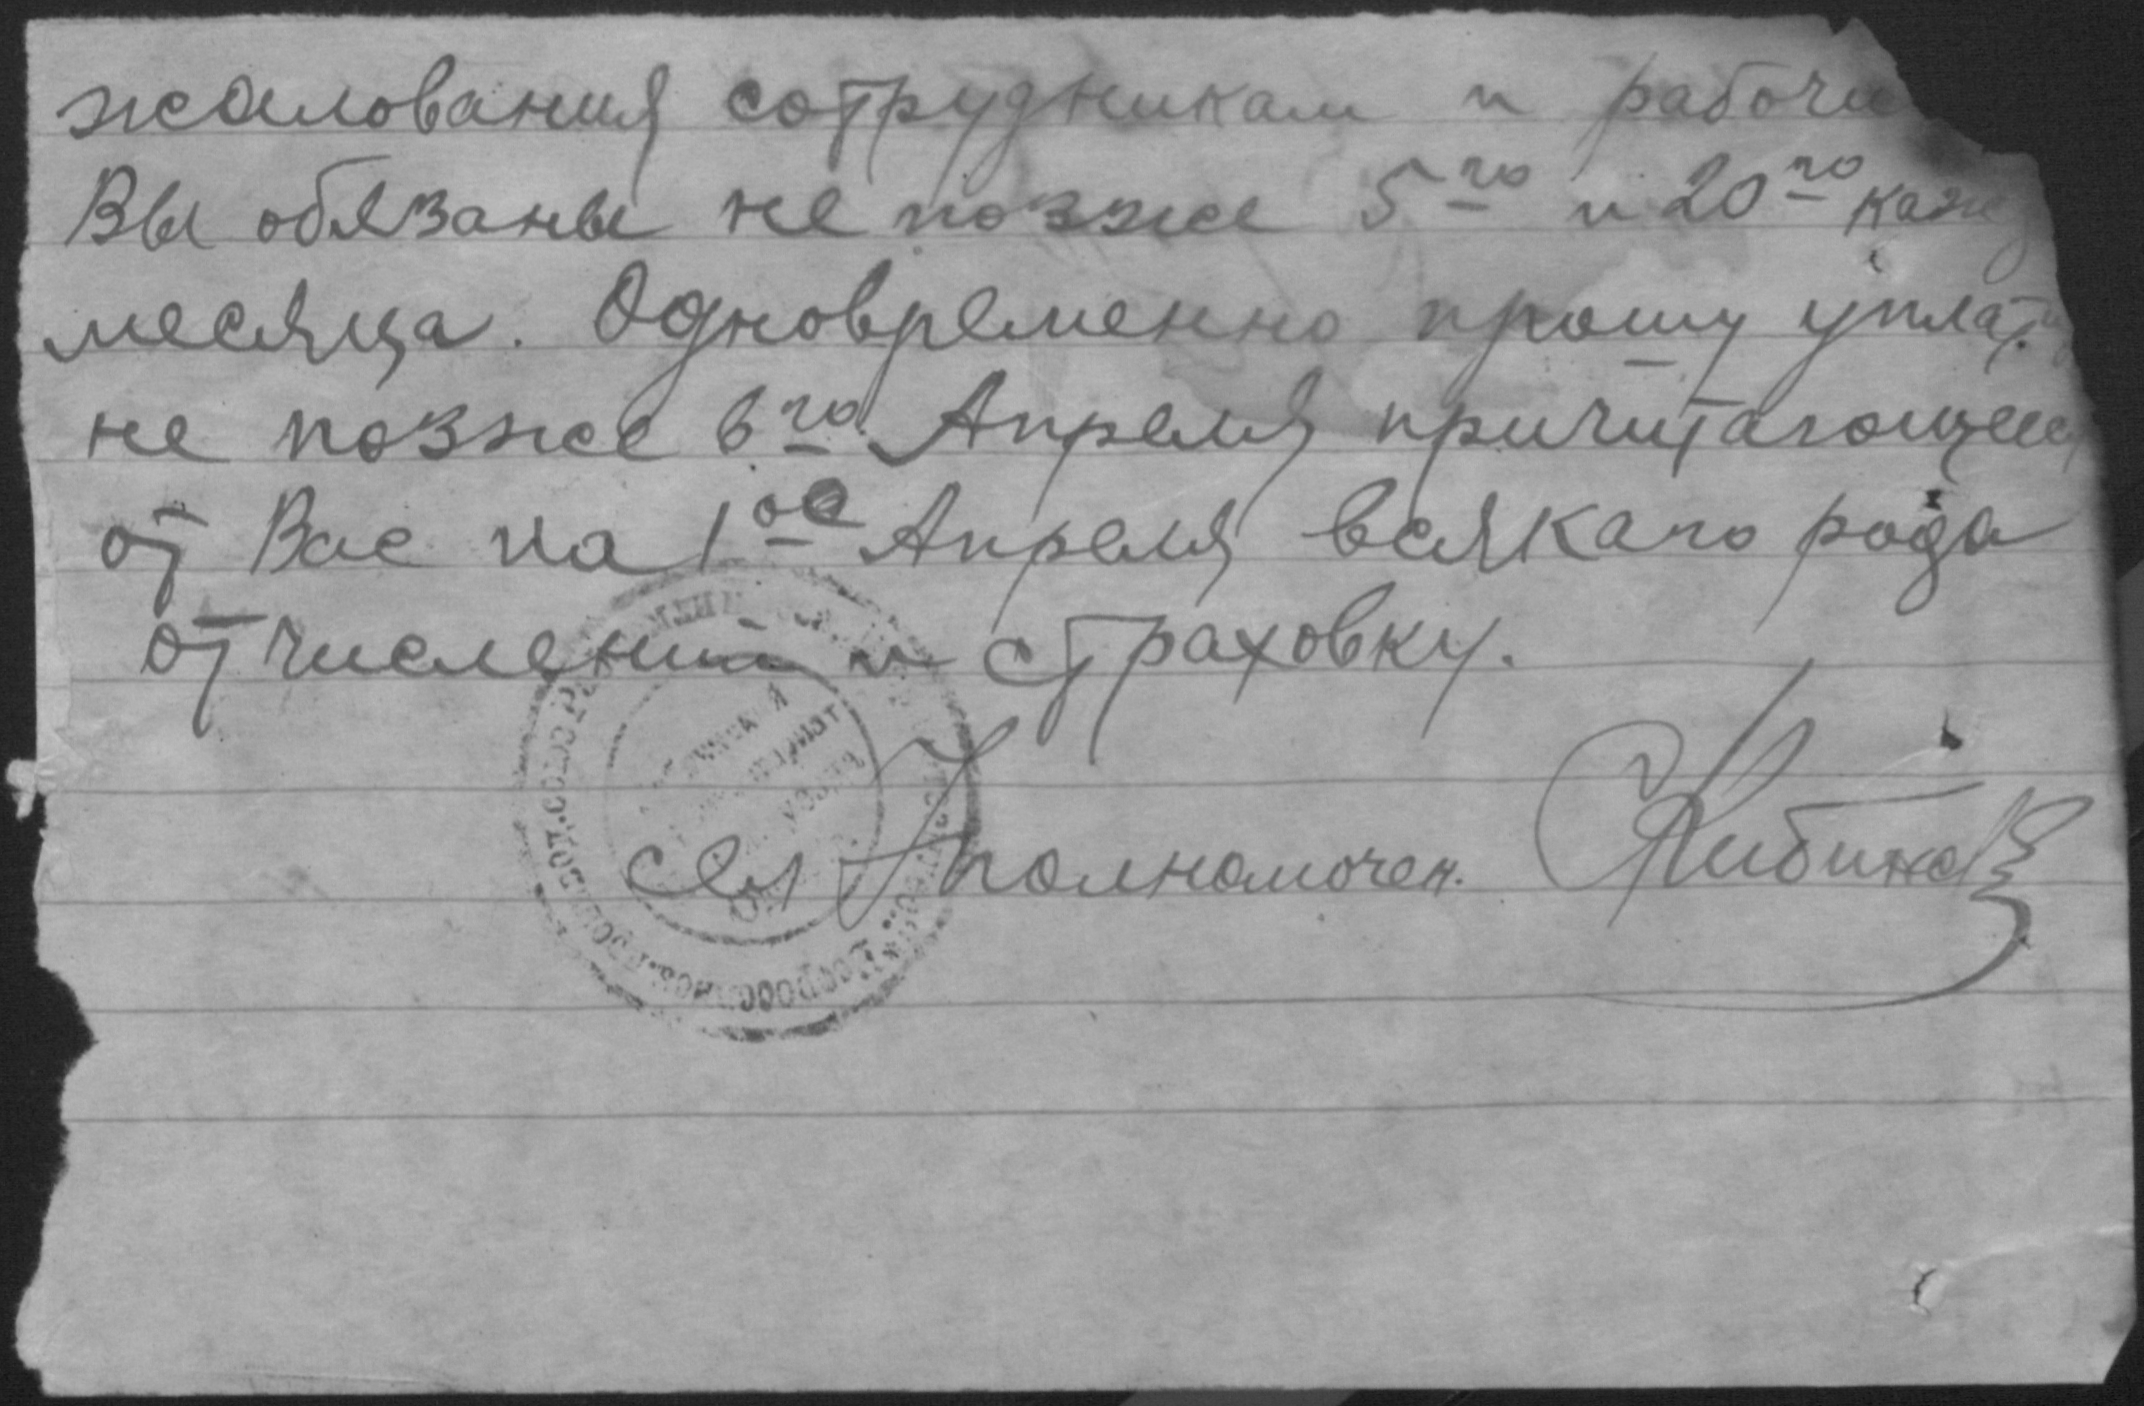 жалования сотрудникам и рабочи
Вы обязаны не позже 5го и 20го каж
месяца. Одновременно прошу уплати
не позже 6го Апреля причитающееся
от Вас на 1ое Апреля всякаго рода
отчислений и страховку.
Уполномочен.